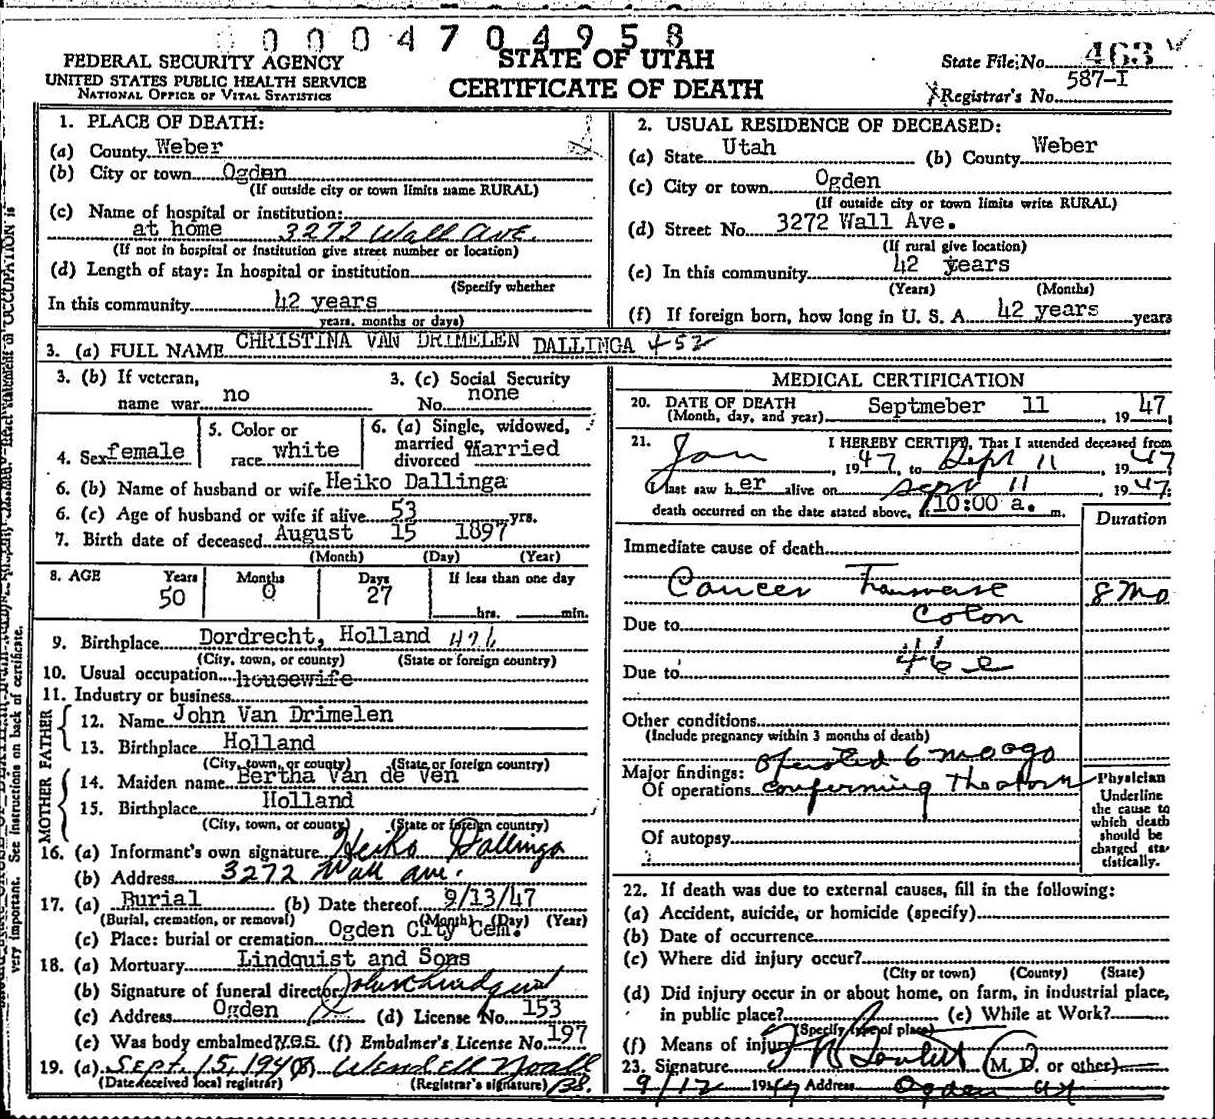 0004704958
FEDERAL SECURITY AGENCY
UNITED STATES PUBLIC HEALTH SERVICE
NATIONAL OFFICE OF VITAL STATISTICS
STATE OF UTAH
CERTIFICATE OF DEATH
State File No. 463
587-I
Registrar's No.
1. PLACE OF DEATH:
(a) County Weber
(b) City or town Ogden
(If outside city or town limits name RURAL)
(c) Name of hospital or institution:
at home 3272 Wall Ave.
(If not in hospital or institution give street number or location)
(d) Length of stay: In hospital or institution
(Specify whether
In this community 42 years
years, months or days)
2. USUAL RESIDENCE OF DECEASED:
(a) State Utah (b) County Weber
(c) City or town Ogden
(If outside city or town limits write RURAL)
(d) Street No. 3272 Wall Ave.
(If rural give location)
(e) In this community 42 years
(Years) (Months)
(f) If foreign born, how long in U. S. A. 42 years years
3. (a) FULL NAME CHRISTINA VAN DRIMELEN DALLINGA 452
3. (b) If veteran,
name war no
3. (c) Social Security
No. none
4. Sex female
5. Color or
race white
6. (a) Single, widowed,
married
divorced Married
6. (b) Name of husband or wife Heiko Dallinga
6. (c) Age of husband or wife if alive 53 yrs.
7. Birth date of deceased August 15 1897
(Month) (Day) (Year)
8. AGE Years Months Days If less than one day
50 0 27 hrs. min.
9. Birthplace Dordrecht, Holland 476
(City, town, or county) (State or foreign country)
10. Usual occupation housewife
11. Industry or business
FATHER
12. Name John Van Drimelen
13. Birthplace Holland
(City, town, or county) (State or foreign country)
MOTHER
14. Maiden name Bertha Van de Ven
15. Birthplace Holland
(City, town, or county) (State or foreign country)
16. (a) Informant's own signature Heiko Dallinga
(b) Address 3272 Wall ave.
17. (a) Burial (b) Date thereof 9/13/47
(Burial, cremation, or removal) (Month) (Day) (Year)
(c) Place: burial or cremation Ogden City Cem.
18. (a) Mortuary Lindquist and Sons
(b) Signature of funeral director
(c) Address Ogden (d) License No. 153
(e) Was body embalmed yes (f) Embalmer's License No. 197
19. (a) Sept. 15, 194 (b)
(Date received local registrar) (Registrar's signature)
MEDICAL CERTIFICATION
20. DATE OF DEATH
(Month, day, and year) Septmeber 11, 1947
21. I HEREBY CERTIFY, That I attended deceased from
Jan, 1947, to Sept 11, 1947
I last saw her alive on Sept 11 1947
death occurred on the date stated above, at 10:00 a. m.
Duration
Immediate cause of death
Cancer Transverse 8 Mo
Due to Colon
Due to 46e
Other conditions
(Include pregnancy within 3 months of death)
Major findings: operated 6 mo ago
Of operations confirming the above
Of autopsy
Physician
Underline
the cause to
which death
should be
charged sta-
tistically.
22. If death was due to external causes, fill in the following:
(a) Accident, suicide, or homicide (specify)
(b) Date of occurrence
(c) Where did injury occur?
(City or town) (County) (State)
(d) Did injury occur in or about home, on farm, in industrial place,
in public place? (e) While at Work?
(Specify type of place)
(f) Means of injury
23. Signature (M. D. or other)
9/12 1947 Address Ogden Ut
very important. See instructions on back of certificate.